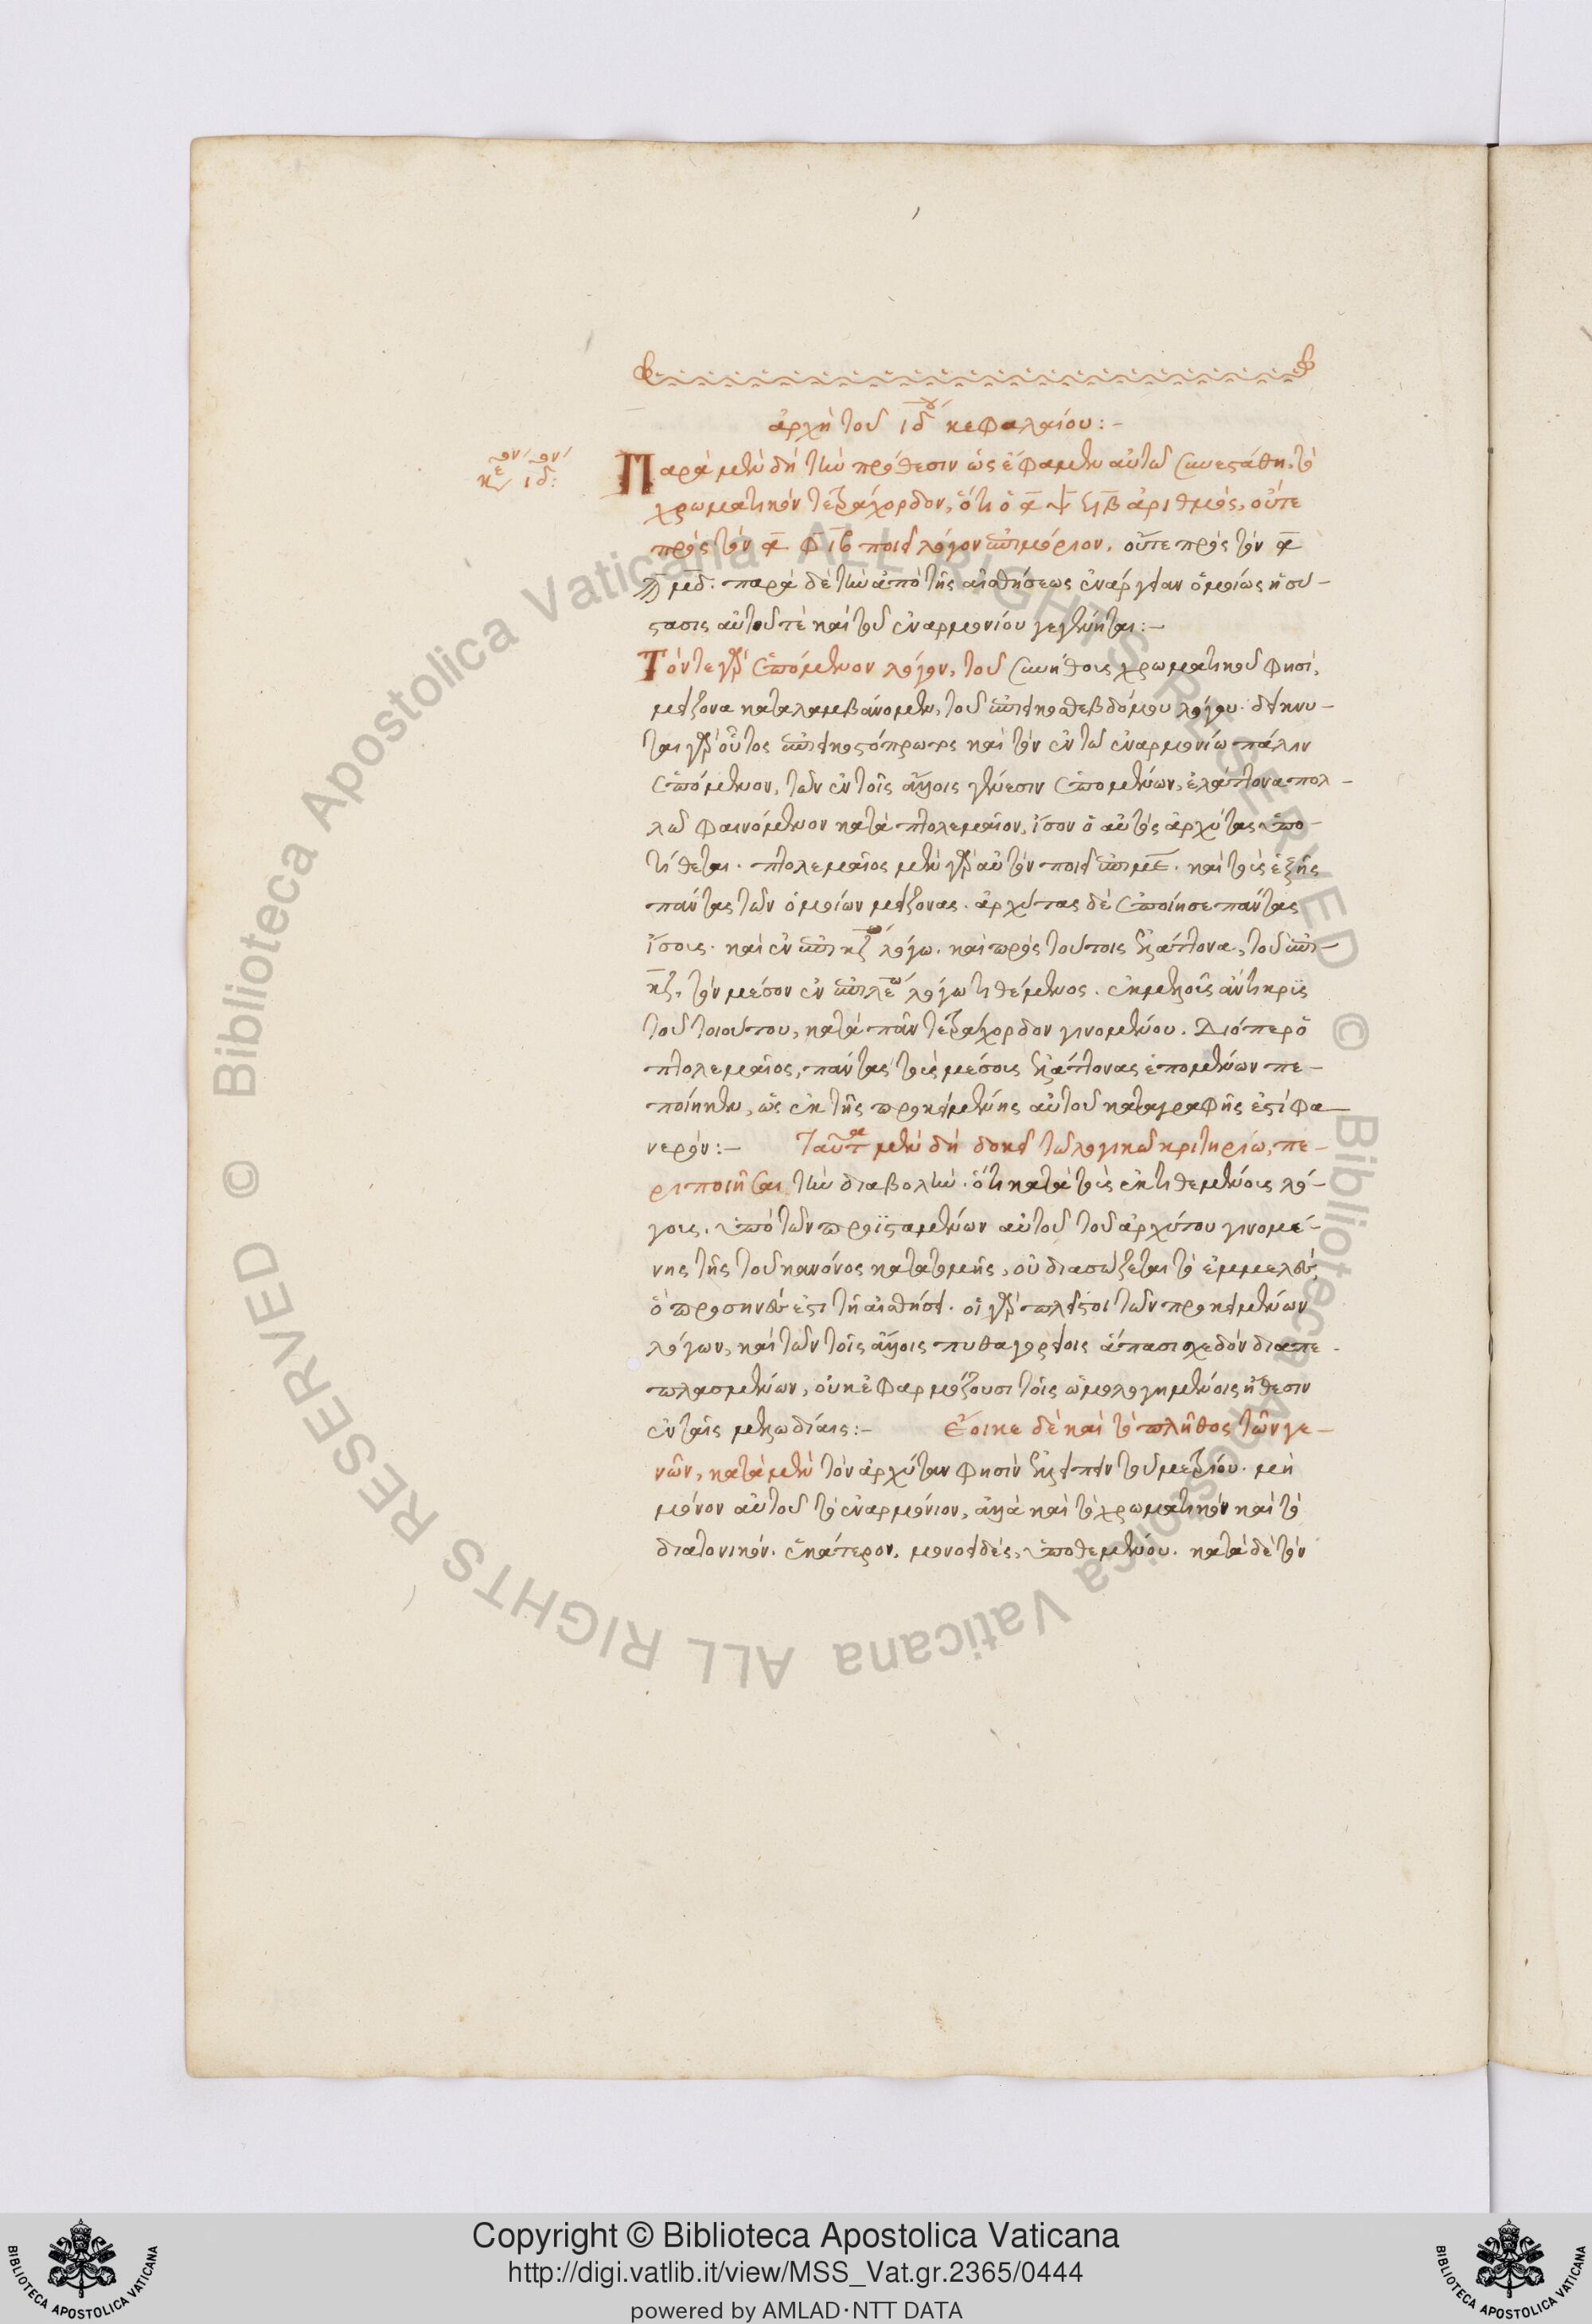 ἀρχὴ τοῦ ιδ^ου κεφαλαίου:-
κε^ον ιδ^ον:
Παρὰ μὲν δὴ τὴν πρόθεσιν ὡς ἔφαμεν αὐτῶ συνεστάθη, τὸ
χρωματικὸν τετράχορδον, ὅτι ὁ α ψ ϟβ ἀριθμὸς, οὔτε
πρὸς τὸν α φιβ ποιεῖ λόγον ἐπιμόριον, οὔτε πρὸς τὸν α
ϡμδ. παρὰ δὲ τὴν ἀπὸ τῆς αἰσθήσεως ἐνάργειαν ὁμοίως ἡ σύ-
στασις αὐτοῦ τὲ καὶ τοῦ ἐναρμονίου γεγένηται:-
Τόν τε γὰρ ἑπόμενον λόγον, τοῦ συνήθους χρωματικοῦ φησὶ,
μείζονα καταλαμβάνομεν, τοῦ ἐπιεικοσθεβδόμου λόγου. δείκνυ-
ται γὰρ οὗτος ἐπιεικοστόπρωτος καὶ τὸν ἐν τῶ ἐναρμονίω πάλιν
ἑπόμενον, τῶν ἐν τοῖς ἄλλοις γένεσιν ἑπομένων, ἐλάττονα πολ-
λῶ φαινόμενον κατὰ πτολεμαῖον, ἴσον ὁ αὐτὸς ἀρχύτας ὑπο-
τίθεται. πτολεμαῖος μὲν γὰρ αὐτὸν ποιεῖ ἐπὶ με. καὶ τοὺς ἑξῆς
πάντας τῶν ὁμοίων μείζονας. ἀρχύτας δὲ ἐποίησε πάντας
ἴσους. καὶ ἐν ἐπὶ κζ^ω λόγω. καὶ πρὸς τούτοις ἐλάττονα, τοῦ ἐπὶ-
κζ, τὸν μέσον ἐν ἐπὶ λε^ω λόγω τιθέμενος. ἐκμελοῦς ἄντικρϋς
τοῦ τοιούτου, κατὰ πᾶν τετράχορδον γινομένου. Διόπερ ὁ
πτολεμαῖος, πάντας τοὺς μέσους ἐλάττονας ἑπομένων πε-
ποίηκεν, ὡς ἐκ τῆς προκειμένης αὐτοῦ καταγραφῆς ἐστὶ φα-
νερόν:- Ταῦτα μὲν δὴ δοκεῖ τῶ λογικῶ κριτηρίω, πε-
ριποιῆσαι τὴν διαβολὴν. ὅτι κατὰ τοὺς ἐκτιθεμένους λό-
γους, ὑπὸ τῶν προϊσταμένων αὐτοῦ τοῦ ἀρχύτου γινομέ-
νης τῆς τοῦ κανόνος κατατομῆς, οὐ διασώζεται τὸ ἐμμελὲς,
ὃ προσηνές ἐστι τῆ αἰσθήσει. οἱ γὰρ πλεῖστοι τῶν προκειμένων
λόγων, καὶ τῶν τοῖς ἄλλοις πυθαγορείοις ἅπασι σχεδὸν διαπε-
πλασμένων, οὐκ ἐφαρμόζουσι τοῖς ὡμολογημένοις ἤθεσιν
ἐν ταῖς μελωδίαις:- Ἔοικε δὲ καὶ τὸ πλῆθος τῶν γε-
νῶν, κατὰ μὲν τὸν ἀρχύταν φησὶν ἐλλείπειν τοῦ μετρίου. μὴ
μόνον αὐτοῦ τὸ ἐναρμόνιον, ἀλλὰ καὶ τὸ χρωματικὸν καὶ τὸ
διατονικόν. ἑκάτερον, μονοειδὲς, ὑποθεμένου. κατὰ δὲ τὸν
Copyright © Biblioteca Apostolica Vaticana
http://digi.vatlib.it/view/MSS_Vat.gr.2365/0444
powered by AMLAD·NTT DATA
BIBLIOTECA APOSTOLICA VATICANA
BIBLIOTECA APOSTOLICA VATICANA
© Biblioteca Apostolica Vaticana ALL RIGHTS RESERVED © Biblioteca Apostolica Vaticana ALL RIGHTS RESERVED